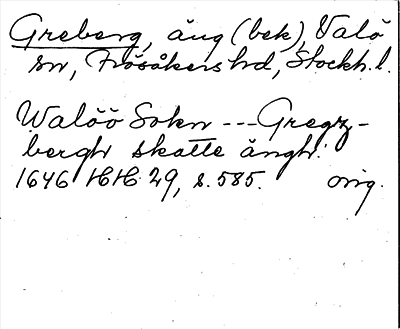 Greberg, äng (bek), Valö
sn, Frösåkers hd, Stockh. l.
Walöö Sokn --- Gregz-
bergh skatte ängh.
1646 HH 29, s. 585. orig.